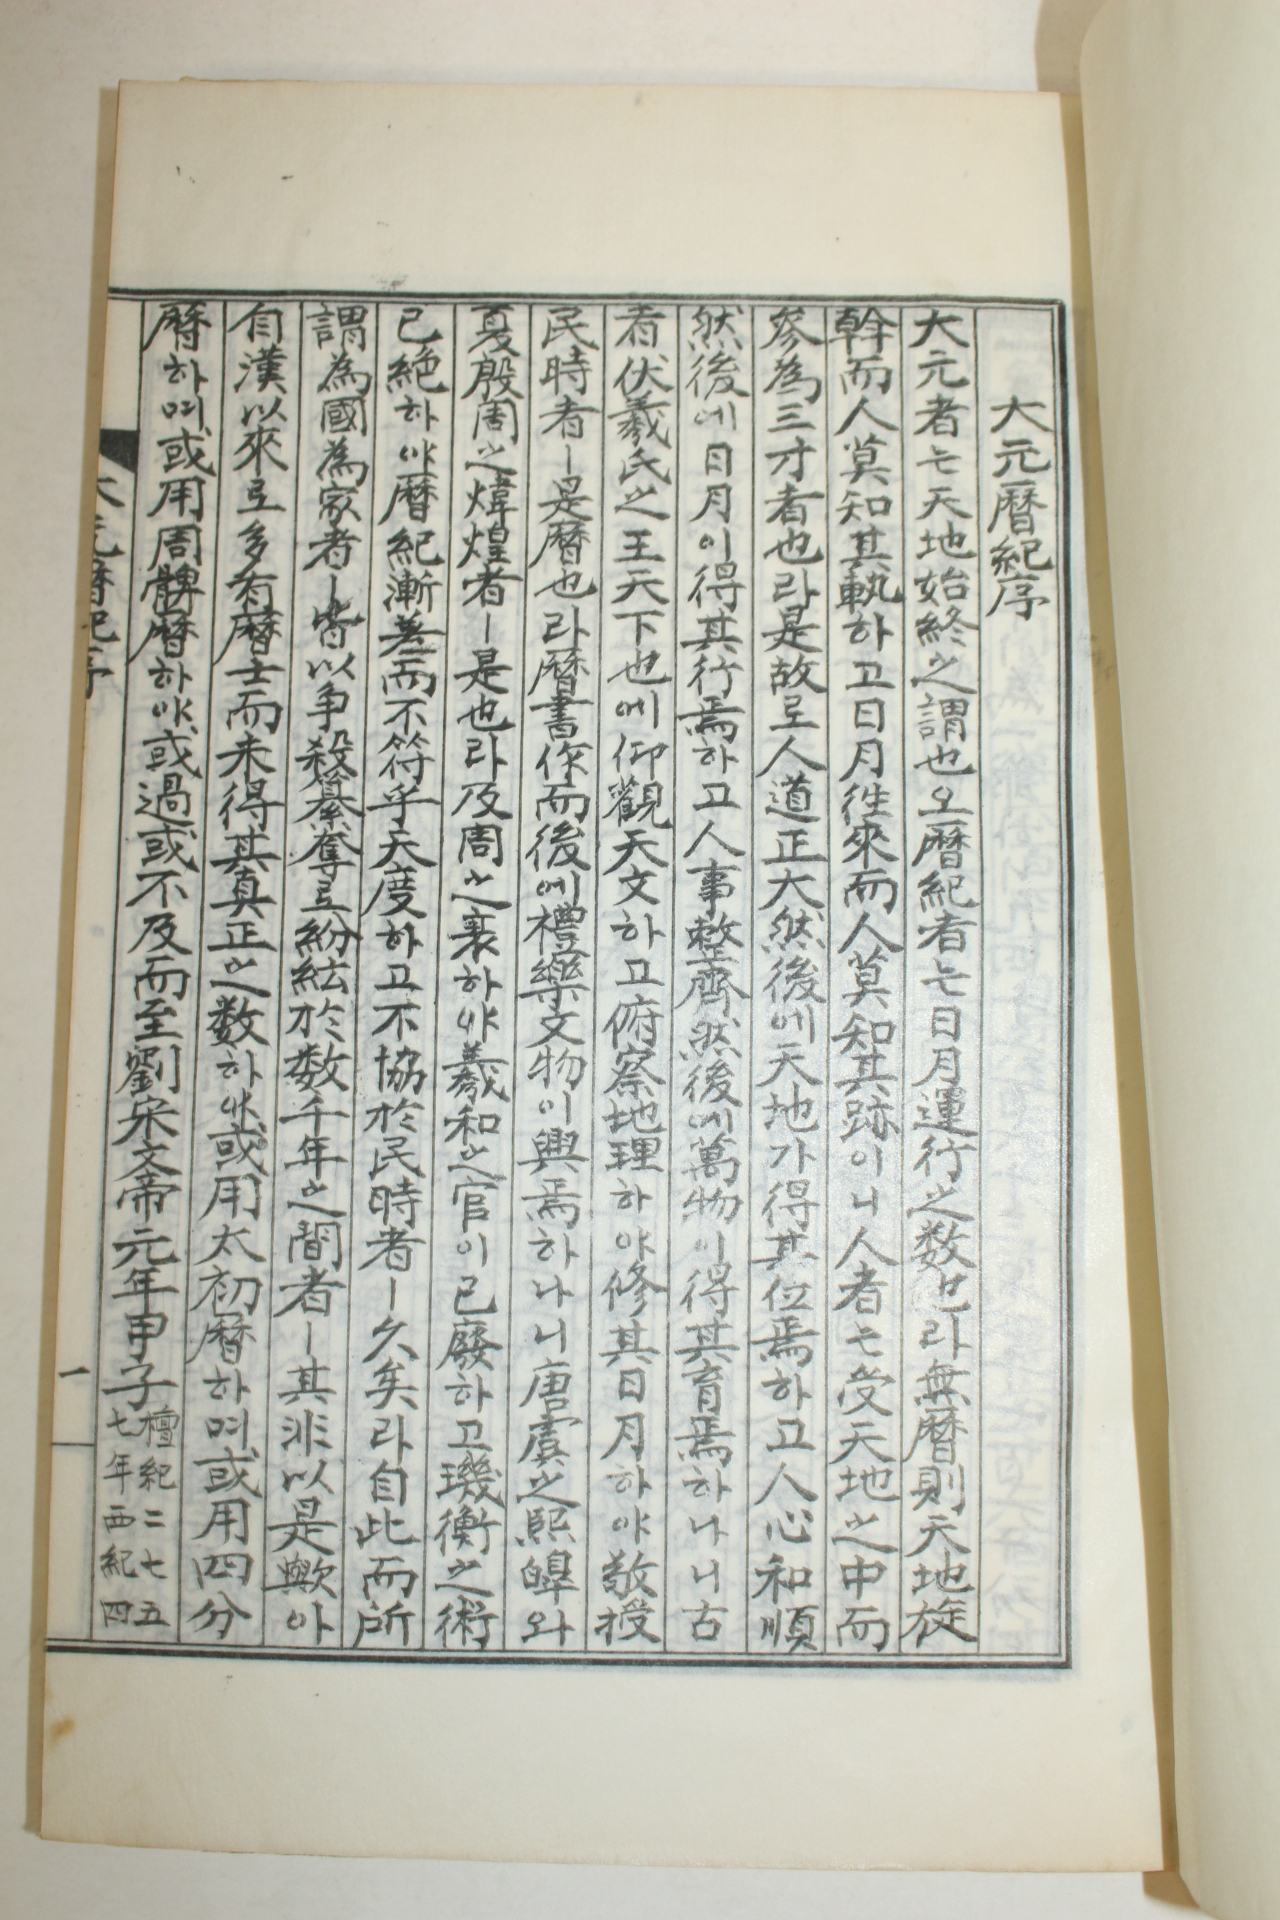 大元曆紀序
大元者는天地始終之謂也오曆紀者는日月運行之数也라無曆則天地旋
斡而人莫知其軌하고日月徃來而人莫知其跡이니人者는受天地之中而
參為三才者也라是故로人道正大然後에天地가得其位焉하고人心和順
然後에日月이得其行焉하고人事整齊然後에萬物이得其育焉하나니古
者伏羲氏之王天下也에仰觀天文하고俯察地理하야修其日月하야敬授
民時者ㅣ是曆也라曆書作而後에禮樂文物이興焉하나니唐虞之熙皥와
夏殷周之煒煌者ㅣ是也라及周之衰하야羲和之官이已廢하고璣衡之術
已絶하야曆紀漸差而不符乎天度하고不協於民時者ㅣ久矣라自此而所
謂為國為家者ㅣ皆以爭殺簒奪로紛紜於数千年之間者ㅣ其非以是歟아
自漢以來로多有曆士而未得其真正之数하야或用太初曆하며或用四分
曆하며或用周髀曆하야或過或不及而至劉宋文帝元年甲子檀紀二七五
七年西紀四
大元曆紀序
一